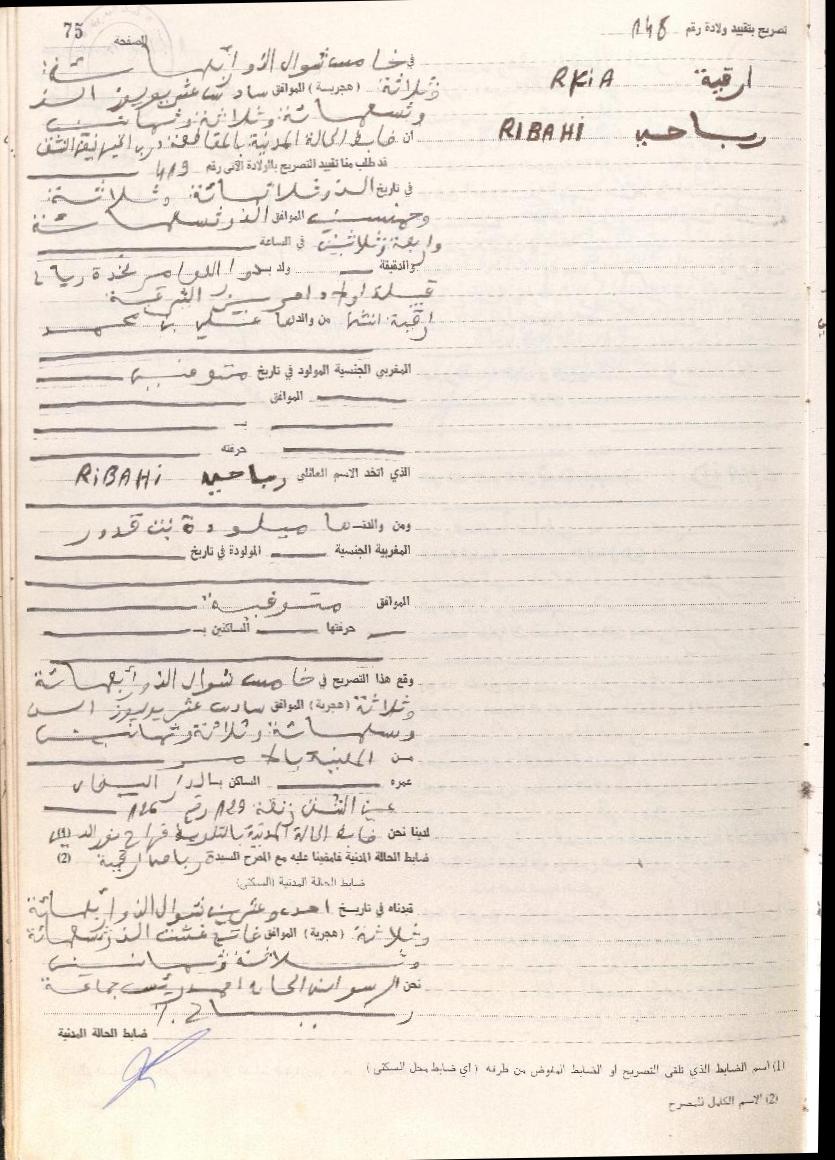 تصريح بتقييد ولادة رقم 148
ارقية RKIA
رباحي RIBAHI
الصفحة 75
في خامس شوال الف واربعمائة
وثلاثة (هجرية) الموافق سادس عشر يوليوز الف
وتسعمائة وثلاثة وثمانين
ان ضابط الحالة المدنية بالمقاطعة
قد طلب منا تقييد التصريح بالولادة الآتي رقم 419
في تاريخ الف وثلاثمائة وثلاثة
وخمسين الموافق الف وتسعمائة
واربعة وثلاثين في الساعة
والدقيقة ولد بدوار
قبيلة اولاد
ارقية انثى من والدها علي بن محمد
المغربي الجنسية المولود في تاريخ متوفى
الموافق
بـ
حرفته
الذي اتخذ الاسم العائلي رباحي RiBAHi
ومن والدتها ميلودة بنت قدور
المغربية الجنسية المولودة في تاريخ
الموافق متوفية
حرفتها الساكنين بـ
وقع هذا التصريح في خامس شوال الف واربعمائة
وثلاثة (هجرية) الموافق سادس عشر يوليوز الف
وتسعمائة وثلاثة وثمانين
من المعنية بالامر
عمره الساكن بالدار البيضاء
عين الشق زنقة 129 رقم 126
لدينا نحن ضابط الحالة المدنية (1)
ضابط الحالة المدنية فامضينا عليه مع المصرح السيدة رباحي ارقية (2)
ضابط الحالة المدنية (السكنى)
قيدناه في تاريخ احد وعشرين شوال الف واربعمائة
وثلاثة (هجرية) الموافق غشت الف وتسعمائة
وثلاثة وثمانين
نحن رئيس جماعة
ضابط الحالة المدنية
(1) اسم الضابط الذي تلقى التصريح او الضابط المفوض من طرفه (اي ضابط محل السكنى)
(2) الاسم الكامل للمصرح